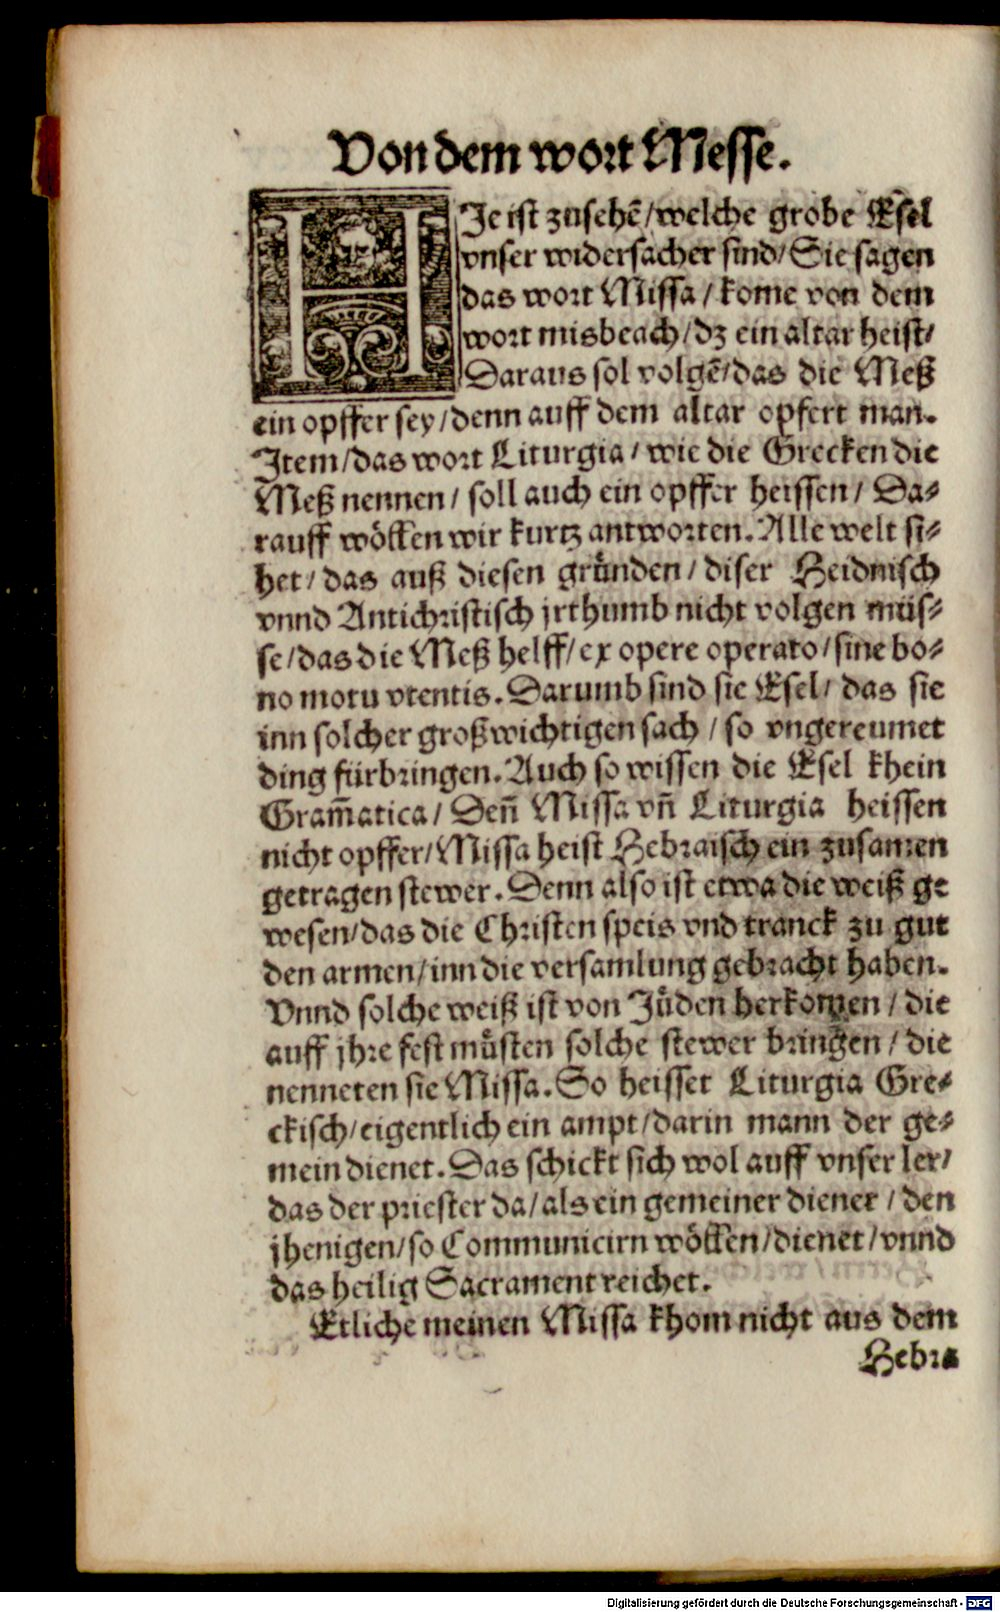 Von dem wort Messe.
HJe ist zusehẽ/welche grobe Esel
vnser widersacher sind/Sie sagen
das wort Missa/kome von dem
wort misbeach/dz ein altar heist/
Daraus sol volgẽ/das die Meß
ein opffer sey/denn auff dem altar opfert man.
Jtem/das wort Liturgia/wie die Grecken die
Meß nennen/soll auch ein opffer heissen/Da⸗
rauff wöllen wir kurtz antworten. Alle welt si⸗
het/das auß diesen gründen/diser Heidnisch
vnnd Antichristisch jrthumb nicht volgen müs⸗
se/das die Meß helff/ex opere operato/sine bo⸗
no motu vtentis. Darumb sind sie Esel/das sie
inn solcher großwichtigen sach/so vngereumet
ding fürbringen. Auch so wissen die Esel khein
Gram̃atica/Den̄ Missa vn̄ Liturgia heissen
nicht opffer/Missa heist Hebraisch ein zusamen
getragen stewer. Denn also ist etwa die weiß ge
wesen/das die Christen speis vnd tranck zu gut
den armen/inn die versamlung gebracht haben.
Vnnd solche weiß ist von Jüden herkomen/die
auff jhre fest müsten solche stewer bringen/die
nenneten sie Missa. So heisset Liturgia Gre⸗
ckisch/eigentlich ein ampt/darin mann der ge⸗
mein dienet. Das schickt sich wol auff vnser ler/
das der priester da/als ein gemeiner diener/den
jhenigen/so Communicirn wöllen/dienet/vnnd
das heilig Sacrament reichet.
Etliche meinen Missa khom nicht aus dem
Hebra
Digitalisierung gefördert durch die Deutsche Forschungsgemeinschaft - DFG